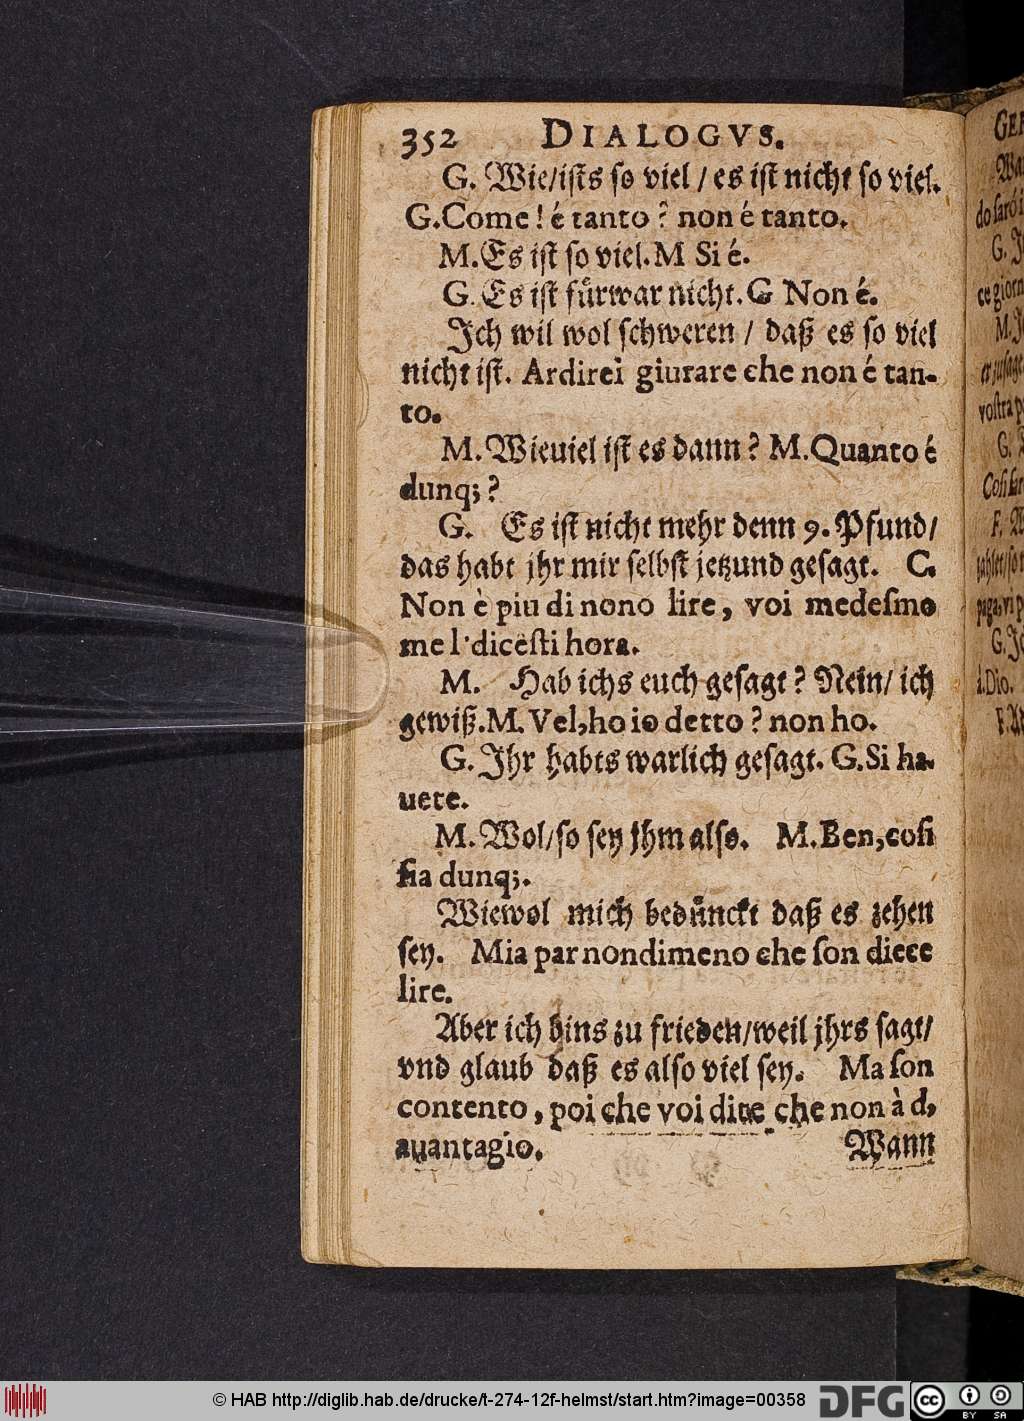 352 DIALOGVS.
G. Wie/ists so viel / es ist nicht so viel.
G. Come! é tanto? non é tanto.
M. Es ist so viel. M Si é.
G. Es ist fuͤrwar nicht. G Non é.
Jch wil wol schweren / daß es so viel
nicht ist. Ardirei giurare che non é tan-
to.
M. Wieuiel ist es dann? M. Quanto é
dunq;?
G. Es ist nicht mehr denn 9. Pfund/
das habt jhr mir selbst jetzund gesagt. C.
Non è piu di nono lire, voi medeſmo
me l'diceſti hora.
M. Hab ichs euch gesagt? Nein/ ich
gewiß. M. Vel, ho io detto? non ho.
G. Jhr habts warlich gesagt. G. Si ha-
uete.
M. Wol/so sey jhm also. M. Ben, coſi
ſia dunq;.
Wiewol mich beduͤnckt daß es zehen
sey. Mia par nondimeno che ſon diece
lire.
Aber ich bins zu frieden/weil jhrs sagt/
vnd glaub daß es also viel sey. Ma ſon
contento, poi che voi dite che non à d,
auantagio. Wann
GER
do ſaró i
G. J
ce giorn
M. J
voſtra p
G.
Coſi ſar
F. A
paga, vi p
G. J
i. Dio.
© HAB http://diglib.hab.de/drucke/t-274-12f-helmst/start.htm?image=00358
DFG
cc BY SA